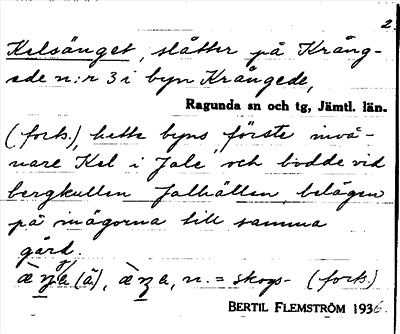 2.
Kelsänget, slåtter på Krång-
ede n:r 3 i byn Krångede,
Ragunda sn och tg, Jämtl. län.
(forts.), hette byns förste invå-
nare Kel i Jale, och bodde vid
bergkullen Jalhällen, belägen
på inägorna till samma
gård.
(ä), n. = skogs- (forts.)
BERTIL FLEMSTRÖM 1936.